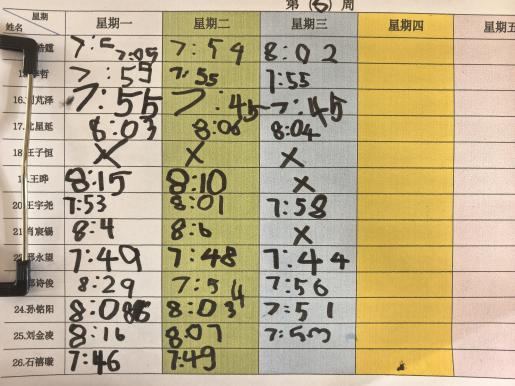 第(6)周
星期 星期一 星期二 星期三 星期四 星期五
姓名
7:5 7:05 7:59 8:02
哲 7:55 7:55 7:55
16. 芃泽 7:55 7:45 7:45
17. 星延 8:03 8:06 8:04
18.汪子恒 X X X
晔 8:15 8:10 X
20.王宇尧 7:53 8:01 7:58
21.肖宸锡 8:4 8:6 X
永望 7:49 7:48 7:44
诗俊 8:29 7:54 7:56
24.孙铭阳 8:08 8:03 7:51
25.刘金凌 8:16 8:07 7:53
26.石禧璇 7:46 7:49